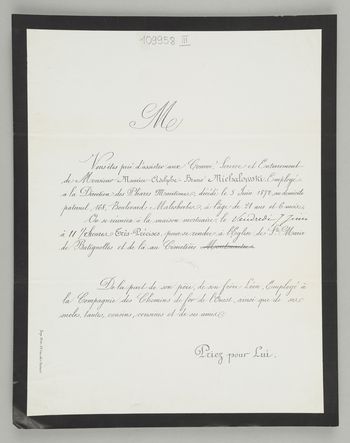 109958 III
M
Vous êtes prié d'assister aux Convoi, Service et Enterrement
de Monsieur Maurice Bruno Michalowski, Employé
à la Direction des Phares Maritimes, décédé, le 5 Juin 1878, au domicile
paternel, 168, Boulevard Malesherbes, à l'âge de 21 ans et 6 mois.
On se réunira à la maison mortuaire, le Vendredi 7 Juin
à 11 heures Très-Précises, pour se rendre à l'Eglise de Ste Marie
de Batignolles et de là au Cimetière Montmartre
De la part de son père, de son frère Léon, Employé à
la Compagnie des Chemins de fer de l'Ouest, ainsi que de ses
oncles, tantes, cousins, cousines et de ses amis.
Priez pour Lui.